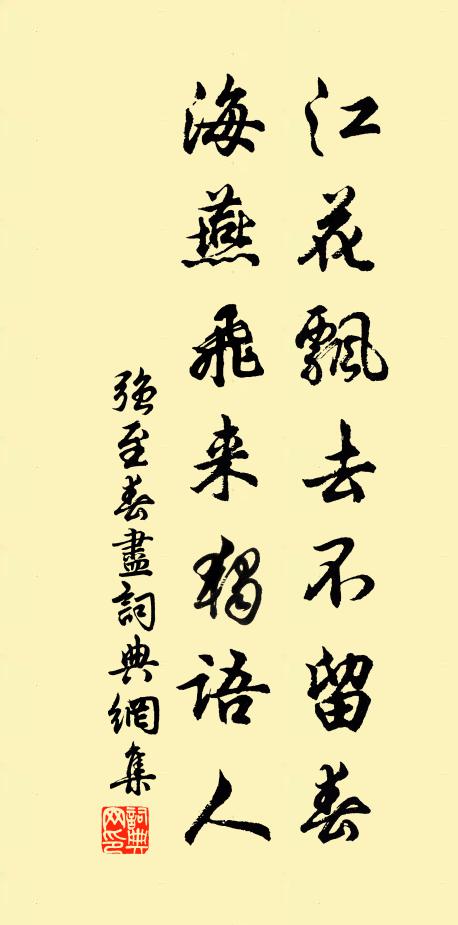 江花飄去不留春
海燕飛来獨語人
強至春盡詞典網集
詞典网印